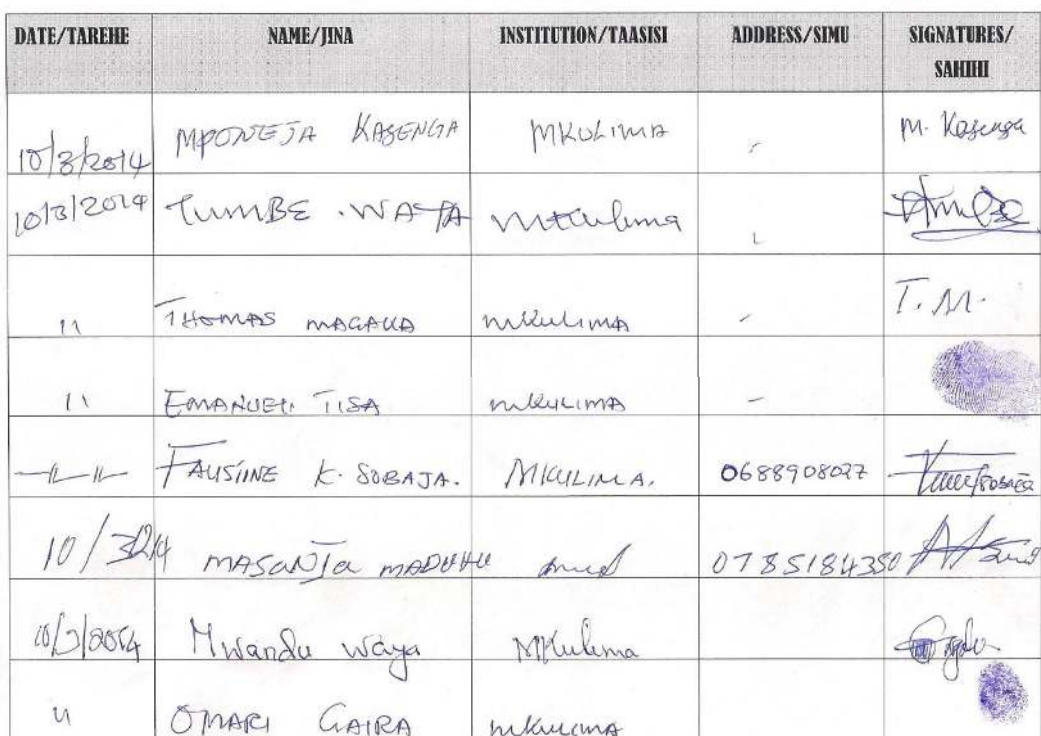 DATE/TAREHE NAME/JINA INSTITUTION/TAASISI ADDRESS/SIMU SIGNATURES/
SAHIHI
10/3/2014 MPONEJA KASENGA MKULIMA - M. Kasenga
10/3/2014 TUMBE .WAYA Mkulima -
" THOMAS MAGAKA mkulima - T.M.
" EMANUEL TISA mkulima -
-"-"- FAUSTINE K. SOBAJA. MKULIMA. 0688908027
10/3/214 MASANJA MADUHU 0785184350
10/3/2014 Mwandu Waya Mkulima
" OMARI GAIRA mkulima